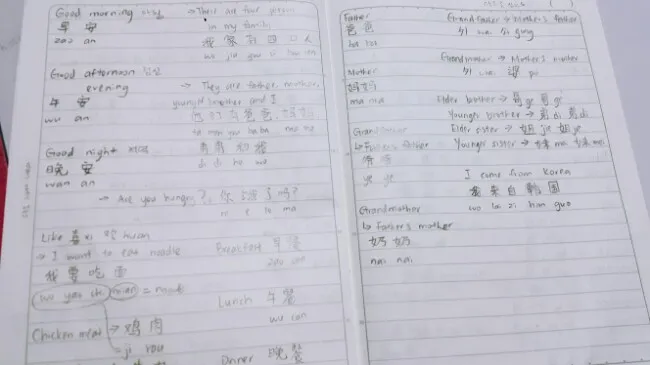 Good morning
早安
zao an
Good afternoon
evening
午安
wu an
Good night
晚安
wan an
Like 喜
→ I want to eat noodle
我要吃
wo yao chi mian = noodle
Chicken meat → 鸡肉
ji rou
→ There are four
in my family
我家有四口人
→ They are father, mother,
younger brother and I
爸爸
ta men you ba ba ma ma
弟弟和我
di di he wo
→ Are you hungry? 你饿了吗?
ni e le ma
Breakfast 早餐
zao can
Lunch 午餐
wu can
Dinner 晚餐
Father
爸爸
ba ba
Mother
妈妈
ma ma
Grandfather
↳ Father's father
爷爷
ye ye
Grandmother
↳ Father's mother
奶奶
nai nai
Grandfather → Mother's father
外 wai 公 gong
Grandmother → Mother's mother
外 wai 婆 po
Elder brother → 哥 ge 哥 ge
Younger brother → 弟 di 弟 di
Elder sister → 姐 jie 姐 jie
Younger sister → 妹 mei 妹 mei
I come from Korea
我来自韩国
wo lai zi han guo